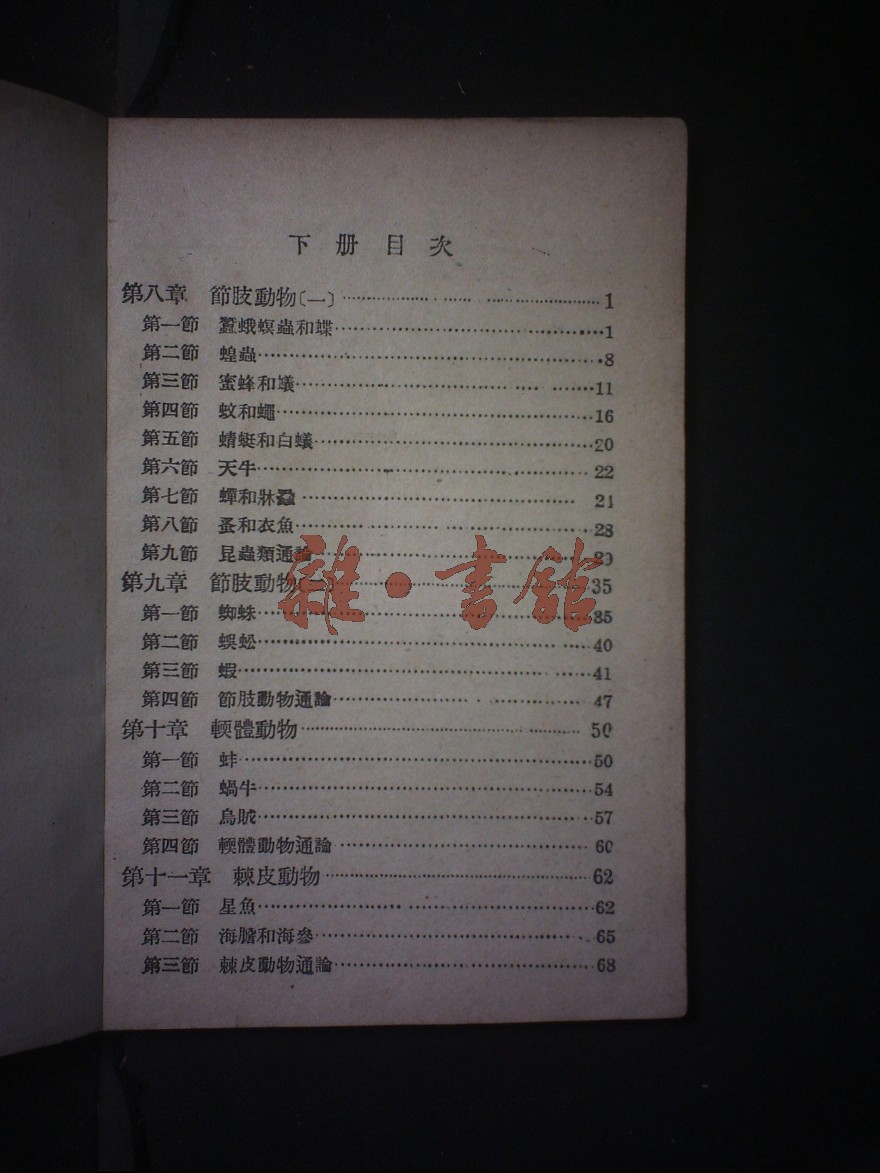 下册目次
第八章 節肢動物〔一〕 1
第一節 蠶蛾螟蟲和蝶 1
第二節 蝗蟲 8
第三節 蜜蜂和蟻 11
第四節 蚊和蠅 16
第五節 蜻蜓和白蟻 20
第六節 天牛 22
第七節 蟬和牀蝨 24
第八節 蚤和衣魚 28
第九節 昆蟲類通論 29
第九章 節肢動物 35
第一節 蜘蛛 35
第二節 蜈蚣 40
第三節 蝦 41
第四節 節肢動物通論 47
第十章 輭體動物 50
第一節 蚌 50
第二節 蝸牛 54
第三節 烏賊 57
第四節 輭體動物通論 60
第十一章 棘皮動物 62
第一節 星魚 62
第二節 海膽和海參 65
第三節 棘皮動物通論 68
雜·書館